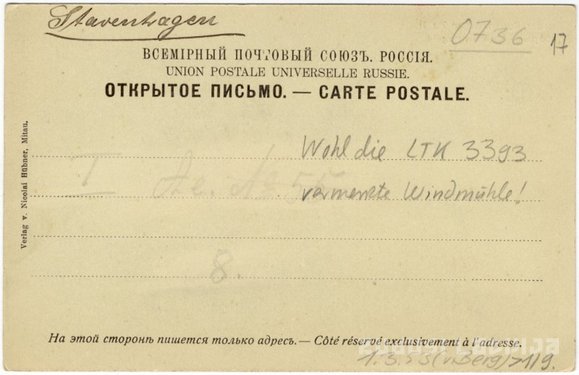 Stavenhagen
0736
17
ВСЕМІРНЫЙ ПОЧТОВЫЙ СОЮЗЪ. РОССІЯ.
UNION POSTALE UNIVERSELLE RUSSIE.
ОТКРЫТОЕ ПИСЬМО. — CARTE POSTALE.
Verlag v. Nicolai Hübner, Mitau.
Wohl die LTK 3393
I
vermerkte Windmühle!
8.
На этой сторонѣ пишется только адресъ. — Côté réservé exclusivement à l'adresse.